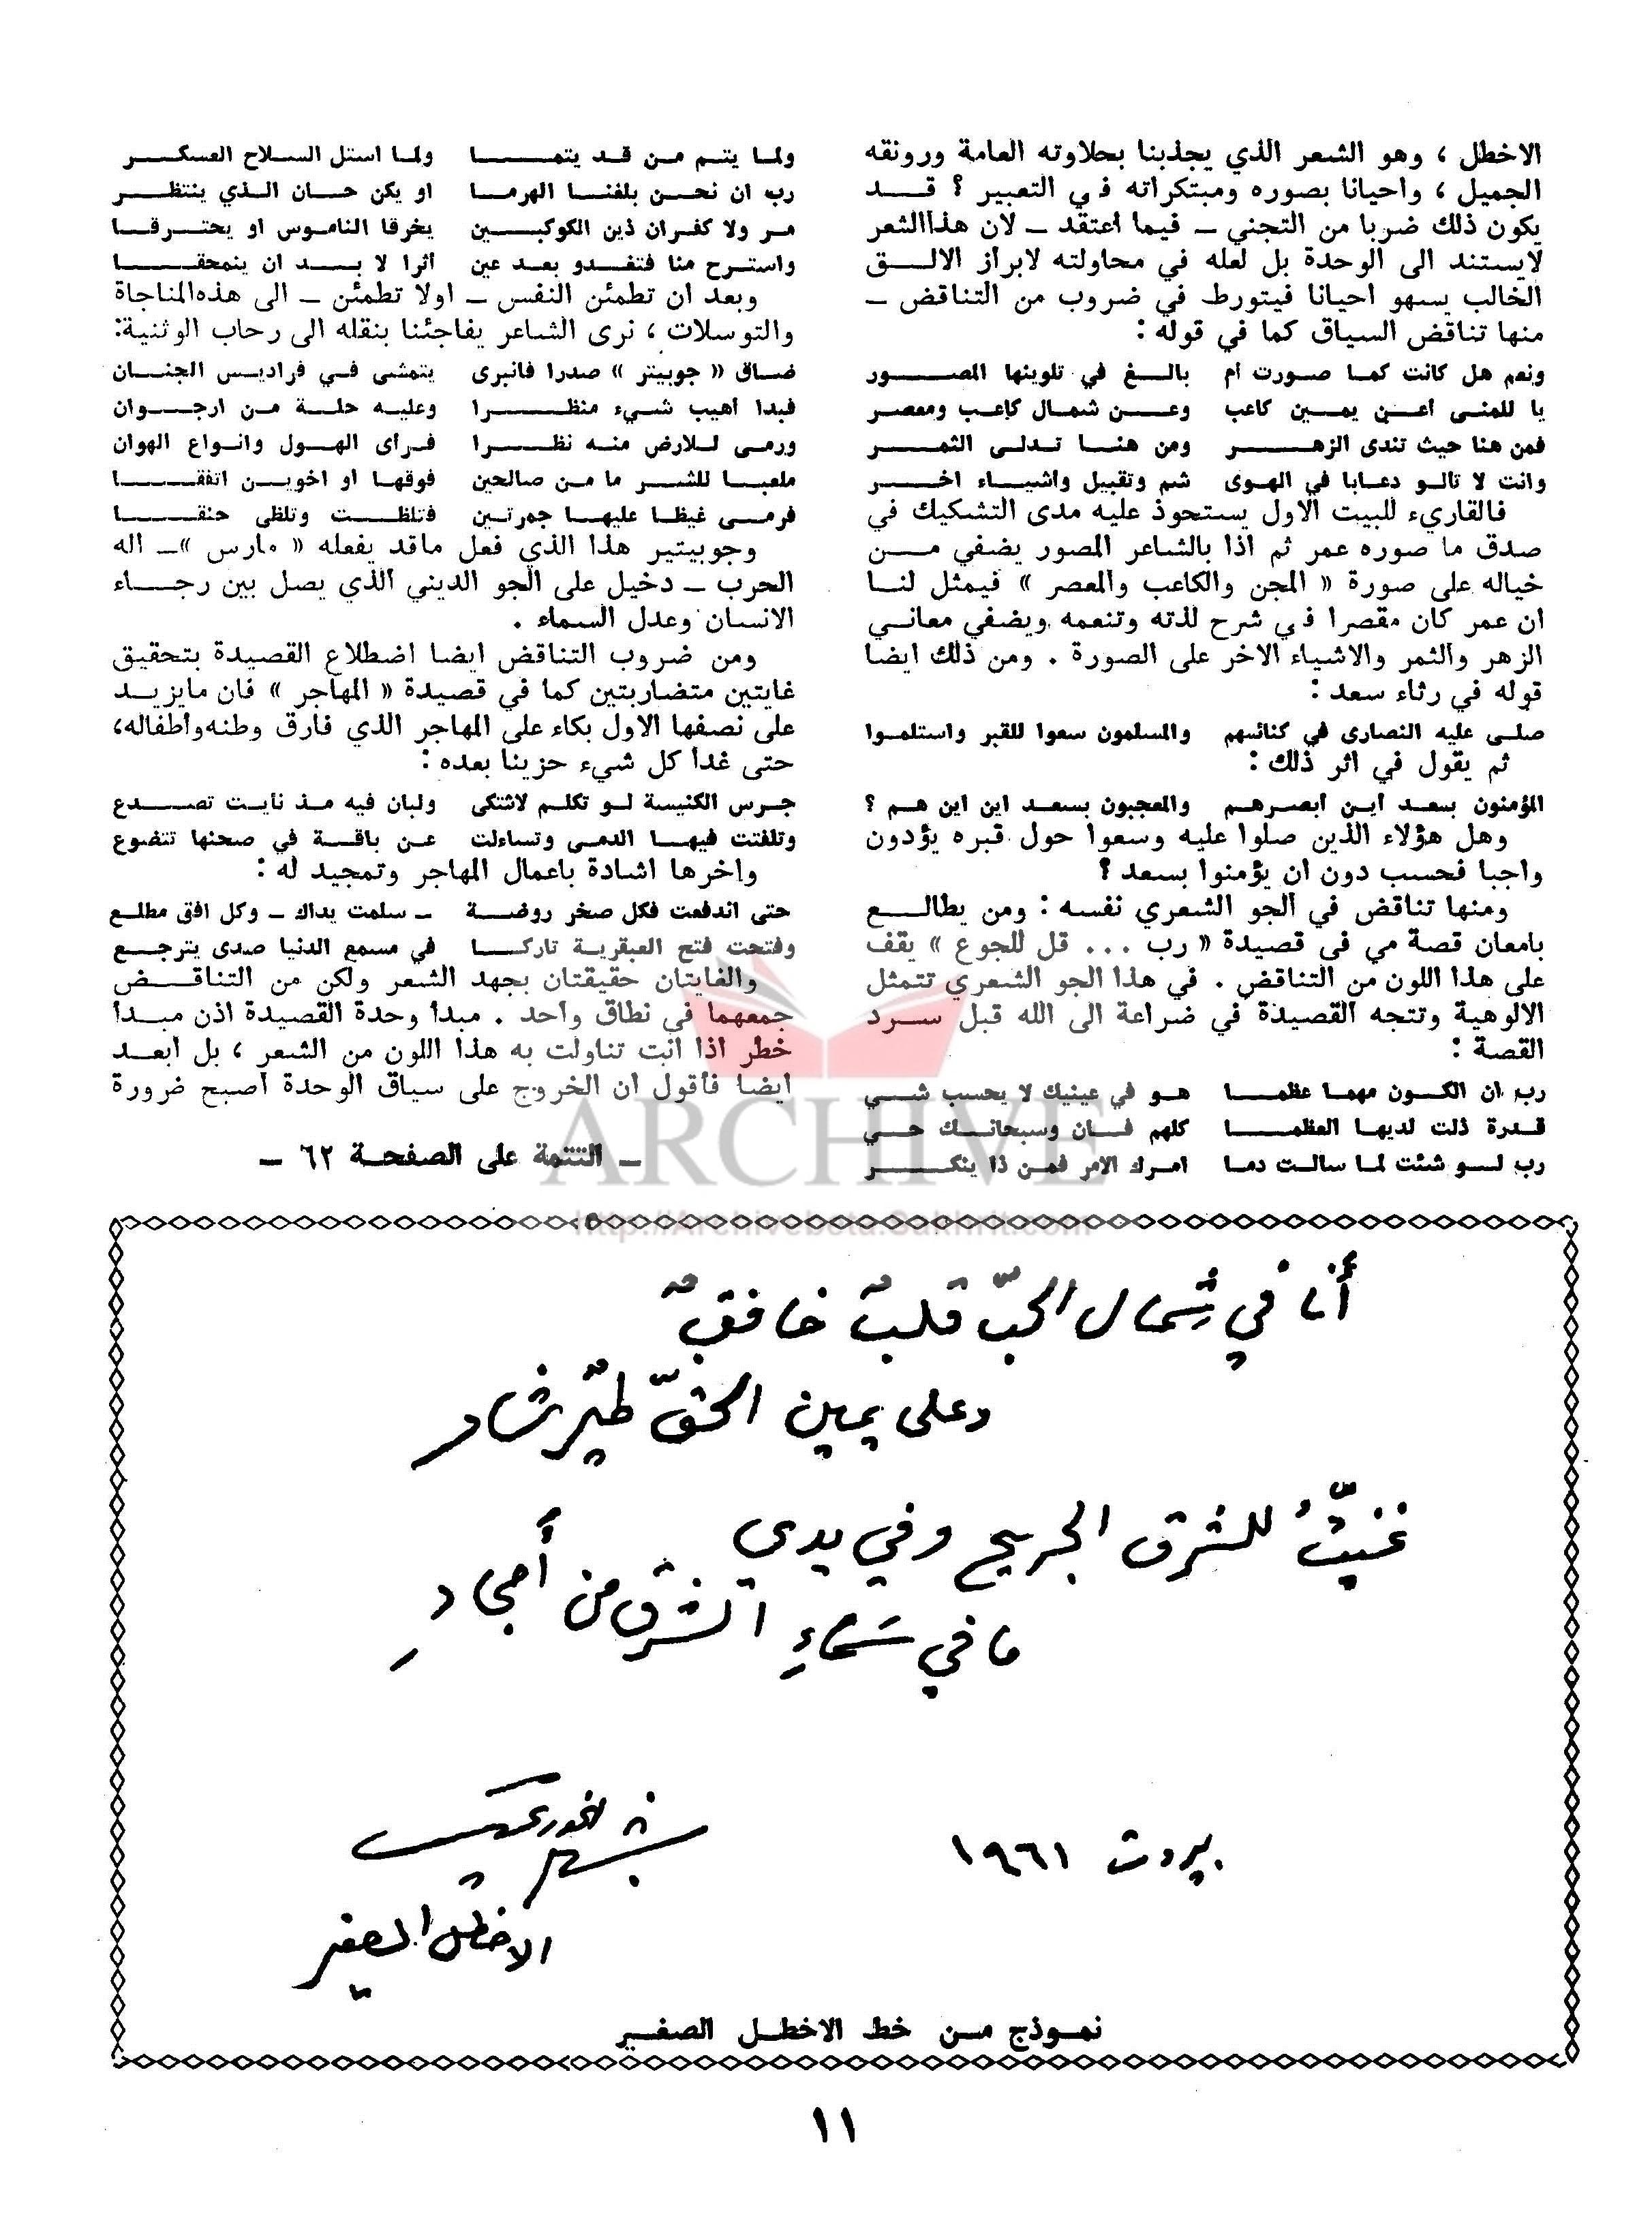 الاخطل ، وهو الشعر الذي يجذبنا بحلاوته العامة ورونقه
الجميل ، واحيانا بصوره ومبتكراته في التعبير ؟ قد
يكون ذلك ضربا من التجني – فيما أعتقد – لان هذا الشعر
لايستند الى الوحدة بل لعله في محاولته لابراز الالق
الخالب يسهو احيانا فيتورط في ضروب من التناقض –
منها تناقض السياق كما في قوله :
ونعم هل كانت كما صورت ام بالغ في تلوينها المصور
يا للمنى أعن يمين كاعب وعن شمال كاعب ومعصر
فمن هنا حيث تندى الزهر ومن هنا تدلى الثمر
وانت لا تالو دعابا في الهوى شم وتقبيل واشياء اخر
فالقاريء للبيت الاول يستحوذ عليه مدى التشكيك في
صدق ما صوره عمر ثم اذا بالشاعر المصور يضفي من
خياله على صورة « المجن والكاعب والمعصر » فيمثل لنا
ان عمر كان مقصرا في شرح لذته وتنعمه ويضفي معاني
الزهر والثمر والاشياء الاخر على الصورة . ومن ذلك ايضا
قوله في رثاء سعد :
صلى عليه النصارى في كنائسهم والمسلمون سعوا للقبر واستلموا
ثم يقول في اثر ذلك :
المؤمنون بسعد أين أبصرهم والمعجبون بسعد اين اين هم ؟
وهل هؤلاء الذين صلوا عليه وسعوا حول قبره يؤدون
واجبا فحسب دون ان يؤمنوا بسعد ؟
ومنها تناقض في الجو الشعري نفسه : ومن يطالع
بامعان قصة مي في قصيدة « رب ... قل للجوع » يقف
على هذا اللون من التناقض . في هذا الجو الشعري تتمثل
الالوهية وتتجه القصيدة في ضراعة الى الله قبل سرد
القصة :
رب ان الكون مهما عظما هو في عينيك لا يحسب شي
قدرة ذلت لديها العظما كلهم فان وسبحانك حي
رب لو شئت لما سالت دما امرك الامر فمن ذا ينكر
ولما يتم من قد يتما ولما استل السلاح العسكر
رب ان نحن بلغنا الهرما او يكن حان الذي ينتظر
مر ولا كفران ذين الكوكبين يخرقا الناموس او يحترقا
واسترح منا فتغدو بعد عين أثرا لا بد ان ينمحقا
وبعد ان تطمئن النفس – اولا تطمئن – الى هذه المناجاة
والتوسلات ، نرى الشاعر يفاجئنا بنقله الى رحاب الوثنية:
ضاق « جوبيتر » صدرا فانبرى يتمشى في فراديس الجنان
فبدا أهيب شيء منظرا وعليه حلة من ارجوان
ورمى للارض منه نظرا فرأى الهول وانواع الهوان
ملعبا للشر ما من صالحين فوقها او اخوين اتفقا
فرمى غيظا عليها جمرتين فتلظت وتلظى حنقا
وجوبيتير هذا الذي فعل ماقد يفعله « مارس »– اله
الحرب – دخيل على الجو الديني الذي يصل بين رجاء
الانسان وعدل السماء .
ومن ضروب التناقض ايضا اضطلاع القصيدة بتحقيق
غايتين متضاربتين كما في قصيدة « المهاجر » فان مايزيد
على نصفها الاول بكاء على المهاجر الذي فارق وطنه وأطفاله،
حتى غدا كل شيء حزينا بعده :
جرس الكنيسة لو تكلم لاشتكى ولبان فيه مذ نايت تصدع
وتلفتت فيها الدمى وتساءلت عن باقة في صحنها تتضوع
واخرها اشادة باعمال المهاجر وتمجيد له :
حتى اندفعت فكل صخر روضة – سلمت يداك – وكل افق مطلع
وفتحت فتح العبقرية تاركا في مسمع الدنيا صدى يترجع
والغايتان حقيقتان بجهد الشعر ولكن من التناقض
جمعهما في نطاق واحد . مبدأ وحدة القصيدة اذن مبدأ
خطر اذا انت تناولت به هذا اللون من الشعر ، بل أبعد
ايضا فأقول ان الخروج على سياق الوحدة أصبح ضرورة
– التتمة على الصفحة ٦٢ –
ARCHIVE
http://Archivebeta.Sakhrit.com
أنا في شمال الحبّ قلبٌ خافقٌ
وعلى يمين الحقّ طيرٌ شاد
غنيّتُ للشرق الجريح وفي يدي
ما في سَماءِ الشرق من أمجادِ
بيروت ١٩٦١
بشارة الخوري
الاخطل الصغير
نموذج من خط الاخطل الصغير
١١